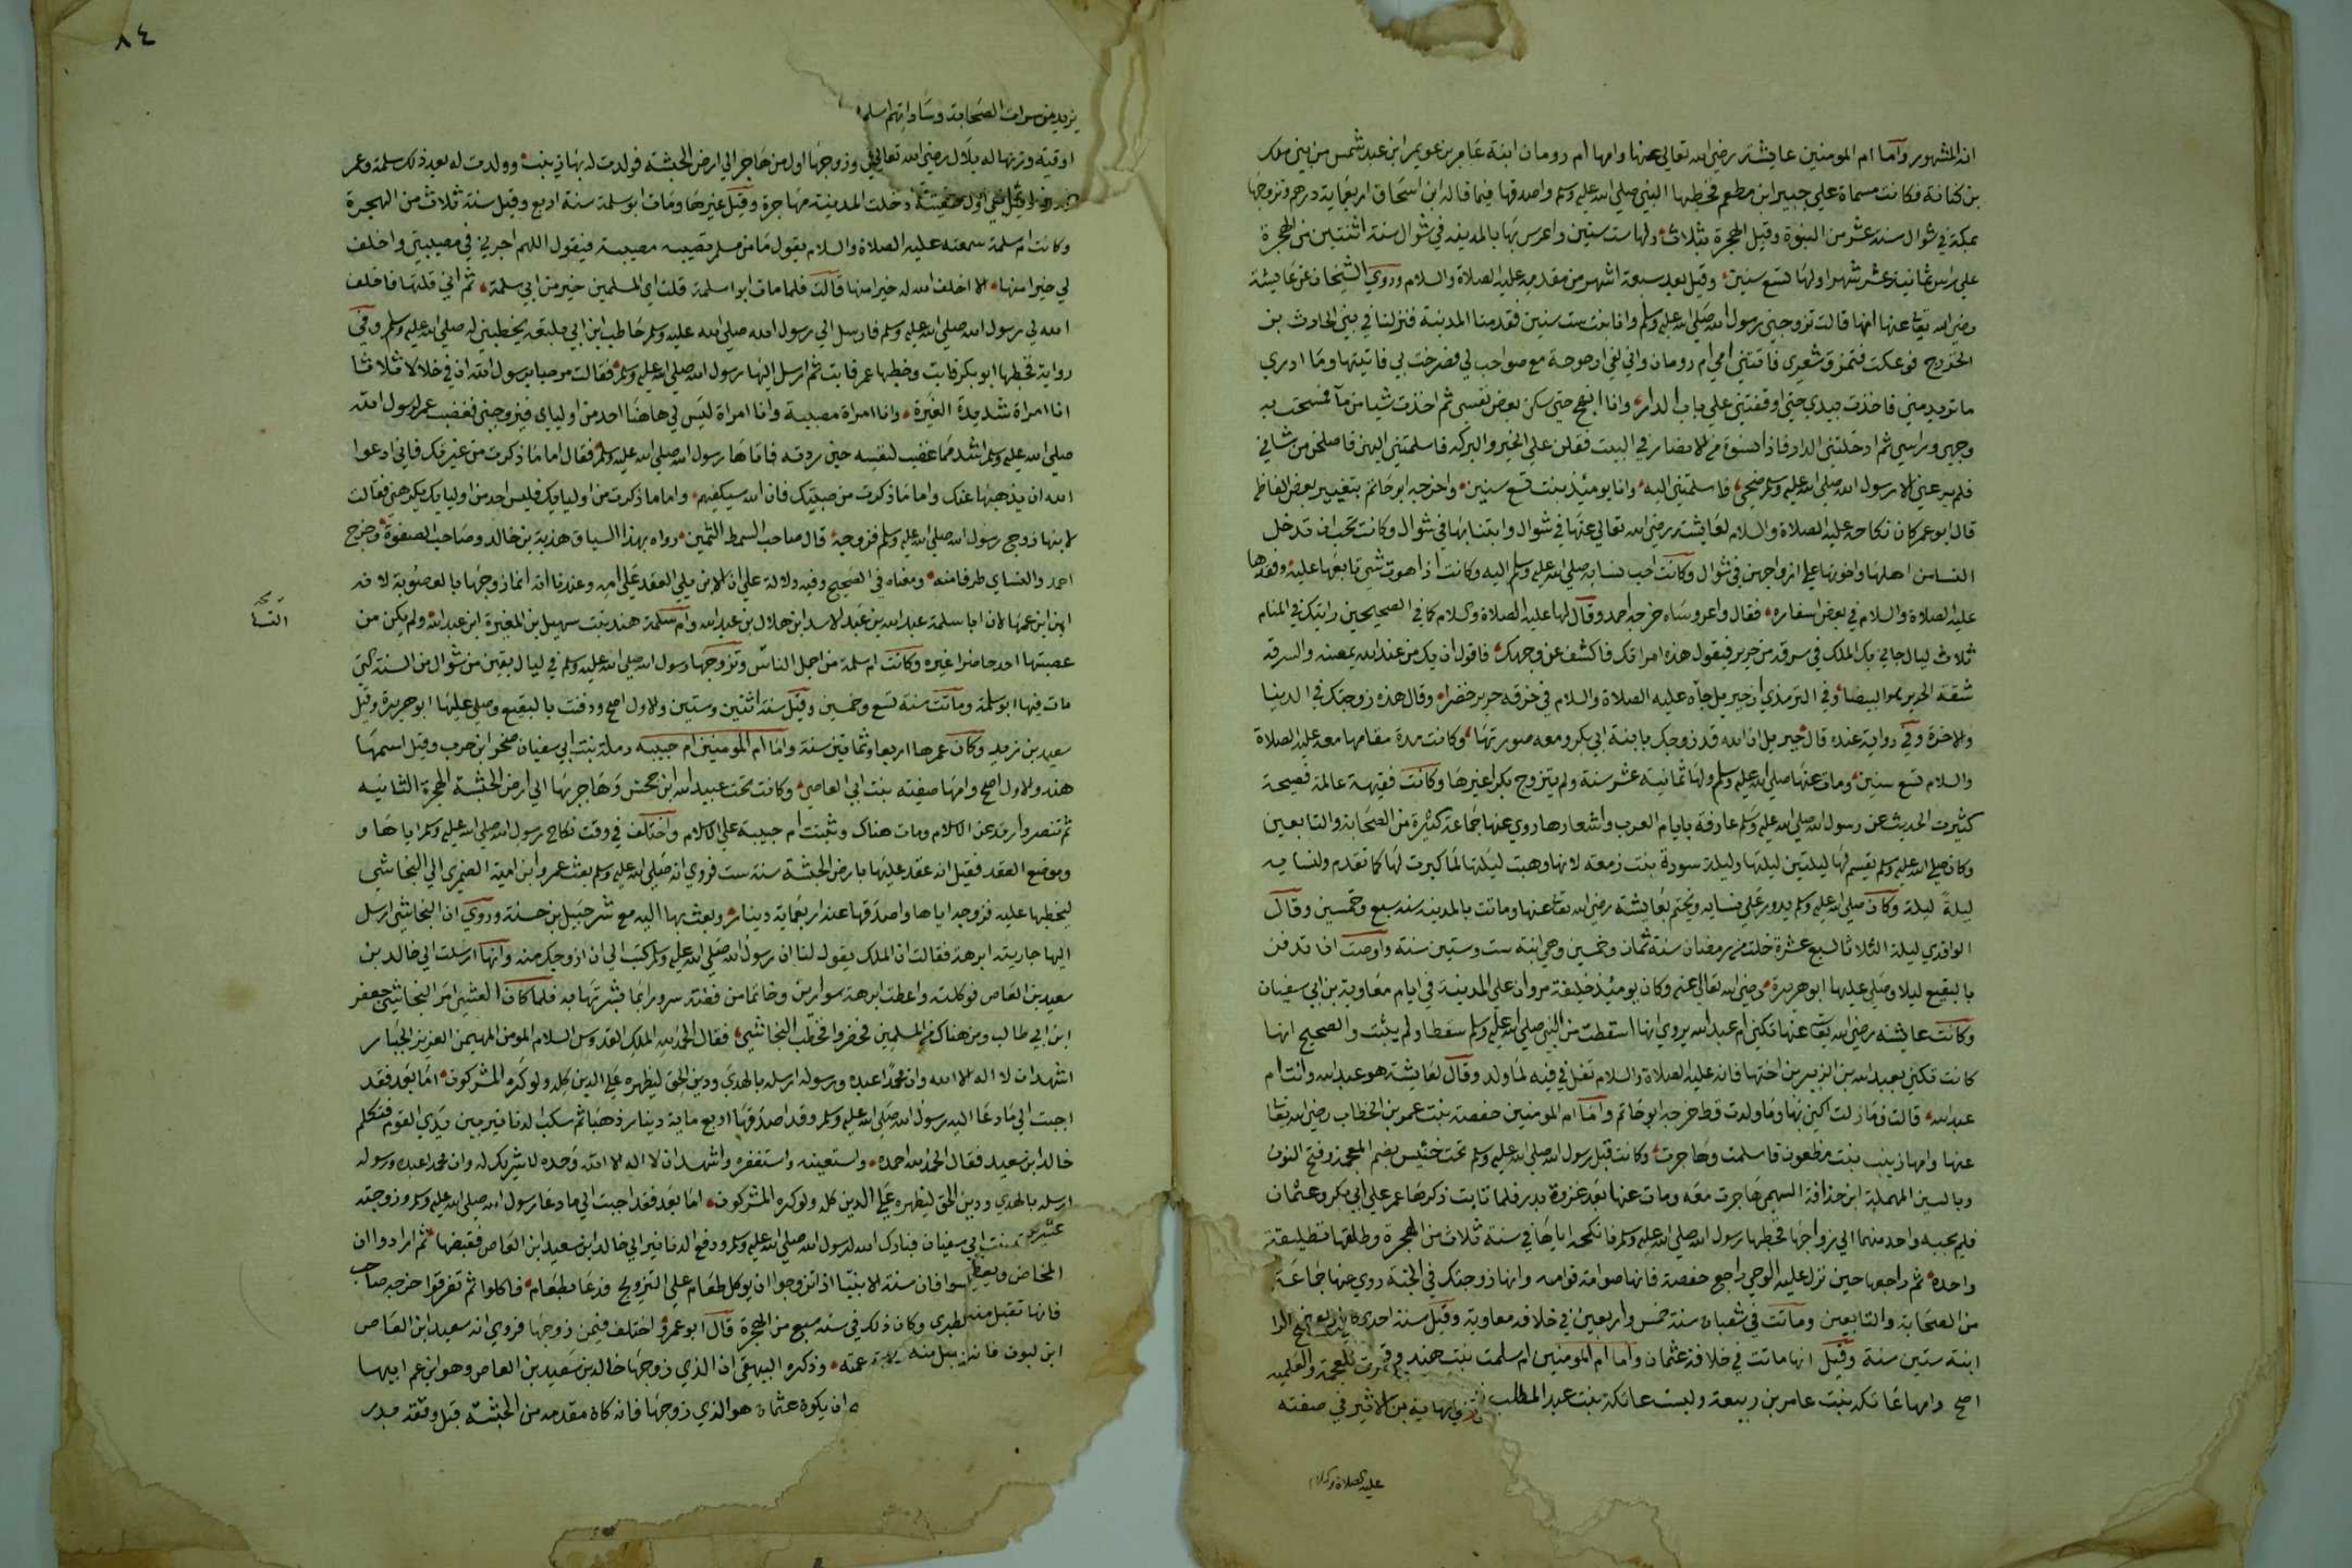 انه المشهور واما ام المومنين عايشه رضي الله تعالي عنها وامها ام رومان ابنة عامر بن عويمر ابن عبد شمس من بني ملك
بن كنانة فكانت مسماة علي جبير ابن مطعم فخطبها النبي صلي الله عليه وسلم واصدقها فيما قاله ابن اسحاق اربعماية درهم وتزوجها
بمكة في شوال سنة عشر من النبوة وقبل الهجرة بثلاث ولها ست سنين واعرس بها بالمدينه في شوال سنة اثنتين من الهجرة
علي راس ثمانية عشر شهرا ولها تسع سنين وقيل بعد سبعة اشهر من مقدمه عليه الصلاة والسلام وروي الشيخان عن عايشة
رضي الله تعا عنها انها قالت تزوجني رسول الله صلي الله عليه وسلم وانا بنت ست سنين فقدمنا المدينة فنزلنا في بني الحارث بن
الخزرج فوعكت فتمزق شعري فاتتني امي ام رومان واني لفي ارجوحة مع صواحب لي فصرخت بي فاتيتها وما ادري
ما تريد مني فاخذت بيدي حتي اوقفتني علي باب الدار وانا انهج حتي سكن بعض نفسي ثم اخذت شيا من مآ فمسحت به
وجهي وراسي ثم ادخلتني الدار فاذا نسوة من الانصار في البيت فقلن علي الخير والبركه فاسلمتني اليهن فاصلحن من شاني
فلم يرعني الا رسول الله صلي الله عليه وسلم ضحي فاسلمتني اليه وانا يومئذ بنت تسع سنين واخرجه ابو حاتم بتغيير بعض الفاظه
قال ابو عمر كان نكاحه عليه الصلاة والسلام لعايشة رضي الله تعالي عنها في شوال وابتنا بها في شوال وكانت تحب ان تدخل
النسا من اهلها واخوتها علي ازواجهن في شوال وكانت احب نسايه صلي الله عليه وسلم اليه وكانت اذا هوت شي تابعها عليه وفقدها
عليه الصلاة والسلام في بعض اسفاره فقال واعروساه خرجه احمد وقال لها عليه الصلاة والسلام كما في الصحيحين رايتك في المنام
ثلاث ليال جاني بك الملك في سرقة من حرير فيقول هذه امراتك فاكشف عن وجهك فاقول ان يك من عند الله يمضه والسرقه
شقة الحرير البيضا وفي الترمذي ان جبريل جاه عليه الصلاة والسلام في خرقه حرير خضرا وقال هذه زوجتك في الدنيا
والاخرة وفي رواية عنده قال جبريل ان الله قد زوجك بابنة ابي بكر ومعه صورتها وكانت مدة مقامها معه عليه الصلاة
والسلام تسع سنين ومات عنها صلي الله عليه وسلم ولها ثمانية عشر سنة ولم يتزوج بكرا غيرها وكانت فقيهة عالمة فصيحة
كثيرت الحديث عن رسول الله صلي الله عليه وسلم عارفة بايام العرب واشعارها روي عنها جماعة كثيرة من الصحابة والتابعين
وكان صلي الله عليه وسلم يقسم لها ليلتين ليلتها وليلة سودة بنت زمعه لانها وهبت ليلتها لما كبرت لها كما تقدم ولنسايه
ليلة ليلة وكان صلي الله عليه وسلم يدور علي نسايه ويختم بعايشة رضي الله تعا عنها وماتت بالمدينه سنه سبع وخمسين وقال
الواقدي ليلة الثلاثا لسبع عشرة خلت من رمضان سنة ثمان وخمسين وهي ابنة ست وستين سنة واوصت ان تدفن
بالبقيع ليلا وصلي عليها ابو هريرة رضي الله تعالي عنه وكان يومئذ خليفة مروان علي المدينة في ايام معاوية بن ابي سفيان
وكانت عايشه رضي الله تعا عنها تكني ام عبد الله يروي انها اسقطت من النبي صلي الله عليه وسلم سقطا ولم يثبت والصحيح انها
كانت تكني بعبد الله بن الزبير بن اختها فانه عليه الصلاة والسلام تفل في فيه لما ولد وقال لعايشة هو عبد الله وانت ام
عبد الله قالت فما زلت اكني بها وما ولدت قط خرجه ابو حاتم واما ام المومنين حفصة بنت عمر بن الخطاب رضي الله تعا
عنها وامها زينب بنت مظعون فاسلمت وهاجرت وكانت قبل رسول الله صلي الله عليه وسلم تحت خنيس بضم المعجمة وفتح النون
وبالسين المهملة ابن حذافة السهمي هاجرت معه ومات عنها بعد غزوة بدر فلما تايمت ذكرها عمر علي ابي بكر وعثمان
فلم يجبه واحد منهما الي زواجها فخطبها رسول الله صلي الله عليه وسلم فانكحه اياها في سنة ثلاث من الهجرة وطلقها تطليقة
واحدة ثم راجعها حين نزل عليه الوحي راجع حفصة فانها صوامة قوامه وانها زوجتك في الجنة روي عنها جماعة
من الصحابة والتابعين وماتت في شعبان سنة خمس واربعين في خلافه معاوية وقيل سنة احدي
ابنة ستين سنة وقيل انها ماتت في خلافة عثمان واما ام المومنين ام سلمت بنت هند
اصح وامها عاتكه بنت عامر بن ربيعة وليست عاتكة بنت عبد المطلب
عليه الصلاة والسلام
٨٤
يزيد من سراات الصحابة وساداتهم اسلم
اوقية وتزنها له بلال رضي الله تعالي وزوجها اول من هاجر الي ارض الحبشه فولدت له بها زينب وولدت له بعد ذلك سلمة وعمر
دخلت المدينة مهاجرة وقيل غيرها ومات ابو سلمة سنة اربع وقيل سنة ثلاث من الهجرة
وكانت ام سلمة سمعته عليه الصلاة والسلام يقول ما من مسلم تصيبه مصيبة فيقول اللهم اجرني في مصيبتي واخلف
لي خيرا منها الا اخلف الله له خيرا منها قالت فلما مات ابو سلمة قلت اي المسلمين خير من ابي سلمة ثم اني قلتها فاخلف
الله لي رسول الله صلي الله عليه وسلم فارسل الي رسول الله صلي الله عليه وسلم حاطب ابن ابي بلتعه يخطبني له صلي الله عليه وسلم وفي
رواية فخطبها ابو بكر فابت وخطبها عمر فابت ثم ارسل اليها رسول الله صلي الله عليه وسلم فقالت مرحبا برسول الله ان في خلالا ثلاثا
انا امراة شديدة الغيرة وانا امراة مصبية وانا امراة ليس لي هاهنا احد من اوليائ فيزوجني فغضب عمر لرسول الله
صلي الله عليه وسلم اشد مما غضب لنفسه حين ردته فاتاها رسول الله صلي الله عليه وسلم فقال اما ما ذكرت من غيرتك فاني ادعوا
الله ان يذهبها عنك واما ما ذكرت من صبيتك فان الله سيكفيهم واما ما ذكرت من اوليايك فليس احد من اوليايك يكرهني فقالت
لابنها زوج رسول الله صلي الله عليه وسلم فزوجه قال صاحب السمط الثمين رواه بهذا السياق هدبة بن خالد وصاحب الصفوة وخرج
احمد والنساي طرفا منه ومعناه في الصحيح وفيه دلالة علي ان الابن يلي العقد علي امه وعندنا انه انما زوجها بالعصوبة لانه
ابن ابن عمها لان ابا سلمة عبد الله بن عبد الاسد ابن هلال بن عبد الله وام سلمة هند بنت سهيل بن المغيرة ابن عبد الله ولم يكن من
عصبتها احد حاضرا غيره وكانت ام سلمة من اجمل الناس وتزوجها رسول الله صلي الله عليه وسلم في ليال بقين من شوال من السنة التي
مات فيها ابو سلمة وماتت سنة تسع وخمسين وقيل سنة اثنتين وستين والاول اصح ودفنت بالبقيع وصلي عليها ابو هريرة وقيل
سعيد بن زيد وكان عمرها اربعا وثمانين سنة واما ام المومنين ام حبيبه رملة بنت ابي سفيان صخر ابن حرب وقيل اسمها
هند والاول اصح وامها صفيته بنت ابي العاصي وكانت تحت عبيد الله ابن جحش وهاجر بها الي ارض الحبشة الهجرة الثانيه
ثم تنصر وارتد عن الاسلام ومات هناك وثبتت ام حبيبة علي الاسلام واختلف في وقت نكاح رسول الله صلي الله عليه وسلم اياها و
وموضع العقد فقيل انه عقد عليها بارض الحبشة سنة ست فروي انه صلي الله عليه وسلم بعث عمرو ابن امية الضمري الي النجاشي
ليخطبها عليه فزوجه اياها واصدقها عنه اربعماية دينار وبعث بها اليه مع شرحبيل بن حسنة وروي ان النجاشي ارسل
اليها جاريته ابرهة فقالت ان الملك يقول لنا ان رسول الله صلي الله عليه وسلم كتب الي ان ازوجك منه وانها ارسلت الي خالد بن
سعيد بن العاص فوكلته واعطت ابرهة سوارين وخاتما من فضة سرورا بما بشرتها به فلما كان العشي امر النجاشي جعفر
ابن ابي طالب ومن هناك من المسلمين فحضروا فخطب النجاشي فقال الحمد لله الملك القدوس السلام المومن المهيمن العزيز الجبار
اشهد ان لا اله الا الله وان محمدا عبده ورسوله ارسله بالهدي ودين الحق ليظهره علي الدين كله ولو كره المشركون اما بعد فقد
اجبت الي ما دعا اليه رسول الله صلي الله عليه وسلم وقد اصدقها اربع ماية دينار ذهبا ثم سكب الدنانير بين يدي القوم فتكلم
خالد ابن سعيد فقال الحمد لله احمده واستعينه واستغفره واشهد ان لا اله الا الله وحده لا شريك له وان محمدا عبده ورسوله
ارسله بالهدي ودين الحق ليظهره علي الدين كله ولو كره المشركون اما بعد فقد اجبت الي ما دعا رسول الله صلي الله عليه وسلم وزوجته
بنت ابي سفيان فبارك الله لرسول الله صلي الله عليه وسلم ودفع الدنانير الي خالد ابن سعيد ابن العاص فقبضها ثم ارادوا ان
فان سنة الانبيا اذا تزوجوا ان يوكل طعام علي التزويج فدعا بطعام فاكلوا ثم تفرقوا خرجه صاحب
وكان ذلك في سنه سبع من الهجرة قال ابو عمر واختلف فيمن زوجها فروي انه سعيد ابن العاص
عمته وذكره البيهقي ان الذي زوجها خالد بن سعيد بن العاص وهو ابن عم ابيها
ان يكون عثمان هو الذي زوجها فانه كان مقدمه من الحبشة قبل وقعة بدر